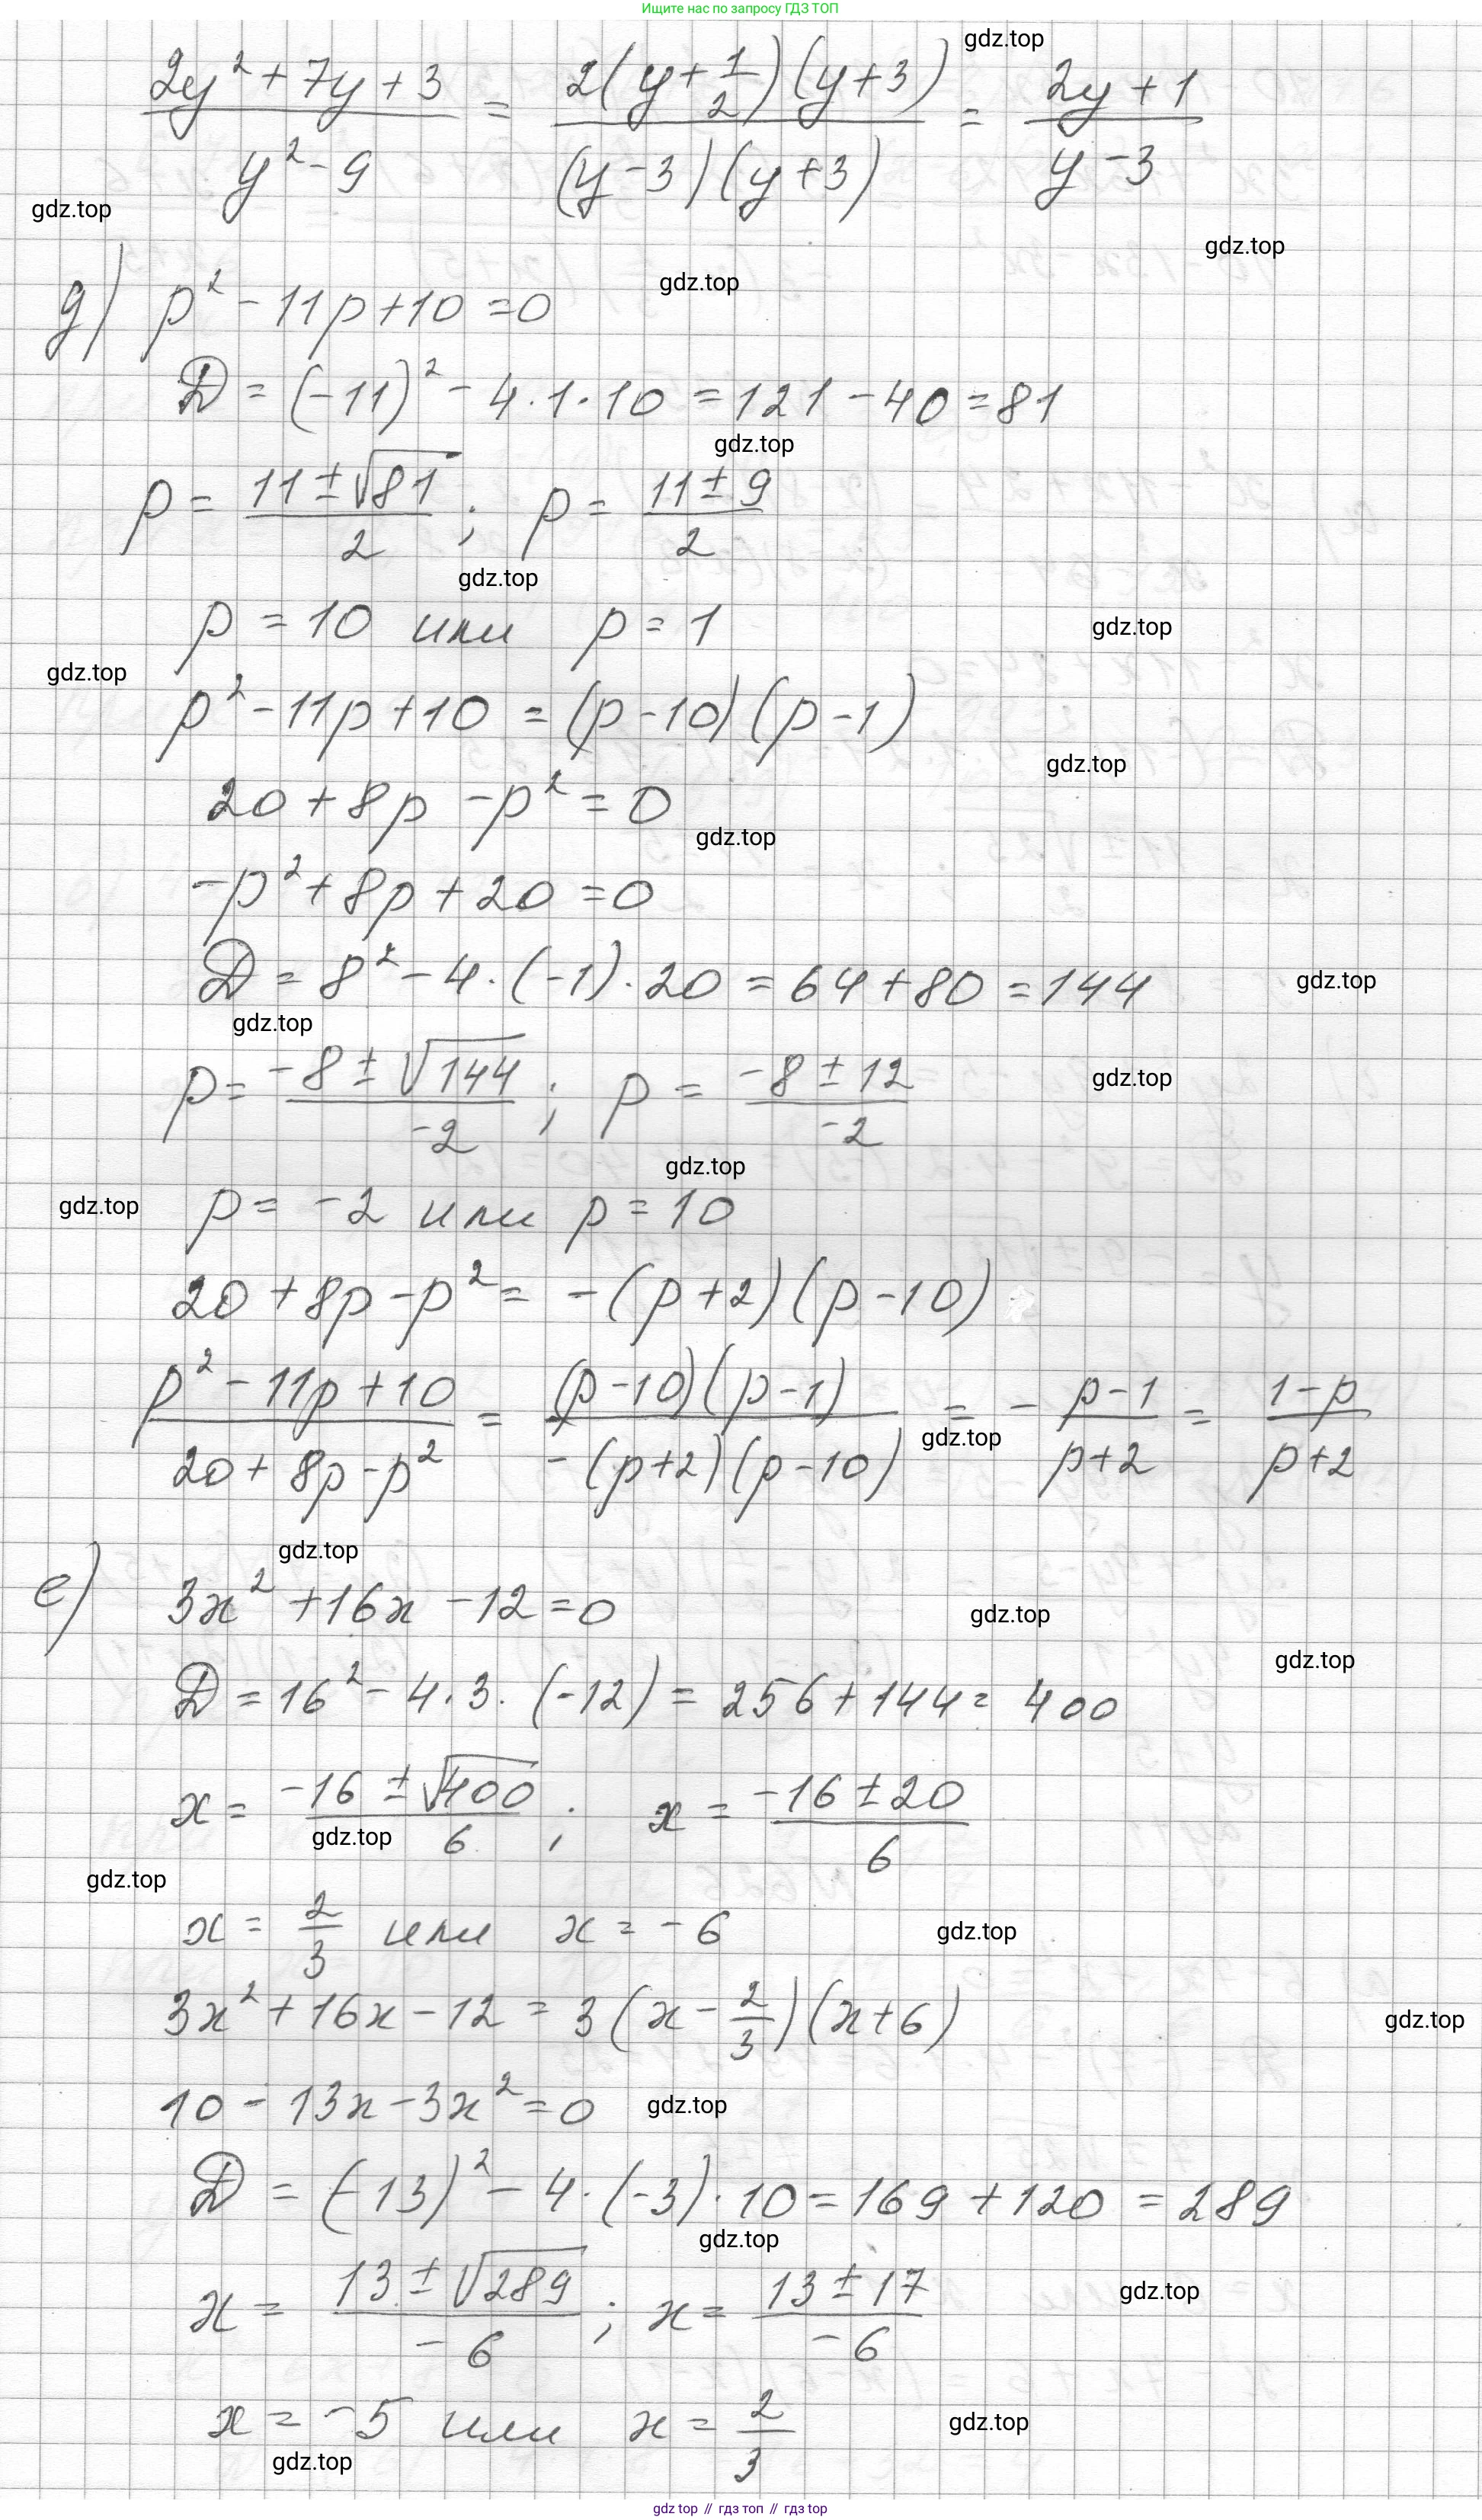 Ищите нас по запросу ГДЗ ТОП
gdz.top
(2y² + 7y + 3)/(y² - 9) = (2(y + 1/2)(y + 3))/((y - 3)(y + 3)) = (2y + 1)/(y - 3)
gdz.top
gdz.top
gdz.top
д) p² - 11p + 10 = 0
D = (-11)² - 4 · 1 · 10 = 121 - 40 = 81
gdz.top
p = (11 ± √81)/2 ; p = (11 ± 9)/2
gdz.top
p = 10 или p = 1
gdz.top
gdz.top
p² - 11p + 10 = (p - 10)(p - 1)
gdz.top
20 + 8p - p² = 0
gdz.top
-p² + 8p + 20 = 0
D = 8² - 4 · (-1) · 20 = 64 + 80 = 144
gdz.top
gdz.top
p = (-8 ± √144)/(-2) ; p = (-8 ± 12)/(-2)
gdz.top
gdz.top
gdz.top
p = -2 или p = 10
20 + 8p - p² = -(p + 2)(p - 10)
(p² - 11p + 10)/(20 + 8p - p²) = ((p - 10)(p - 1))/(-(p + 2)(p - 10)) = - (p - 1)/(p + 2) = (1 - p)/(p + 2)
gdz.top
gdz.top
е) 3x² + 16x - 12 = 0
gdz.top
gdz.top
D = 16² - 4 · 3 · (-12) = 256 + 144 = 400
x = (-16 ± √400)/6 ; x = (-16 ± 20)/6
gdz.top
gdz.top
x = 2/3 или x = -6
gdz.top
3x² + 16x - 12 = 3(x - 2/3)(x + 6)
gdz.top
10 - 13x - 3x² = 0
gdz.top
D = (-13)² - 4 · (-3) · 10 = 169 + 120 = 289
gdz.top
x = (13 ± √289)/(-6) ; x = (13 ± 17)/(-6)
gdz.top
x = -5 или x = 2/3
gdz.top
gdz.top
gdz top // гдз топ // gdz top